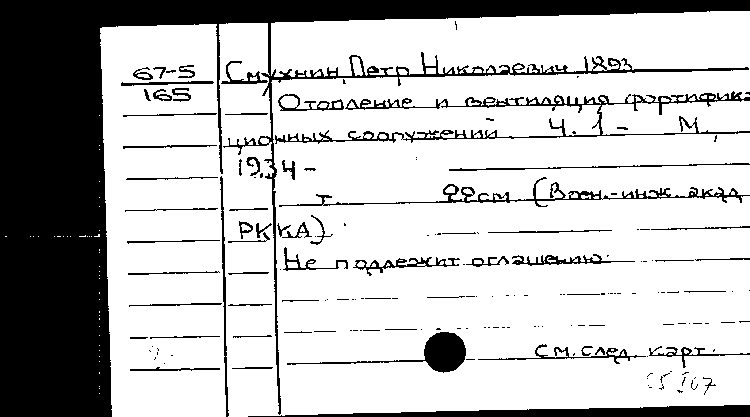 67-5
165
Смухнин, Петр Николаевич, 1893
Отопление и вентиляция фортифика
ционных сооружений. Ч. 1 - М.,
1934 -
т. 22см. (Воен.-инж. акад
РККА).
Не подлежит оглашению.
См. след. карт.